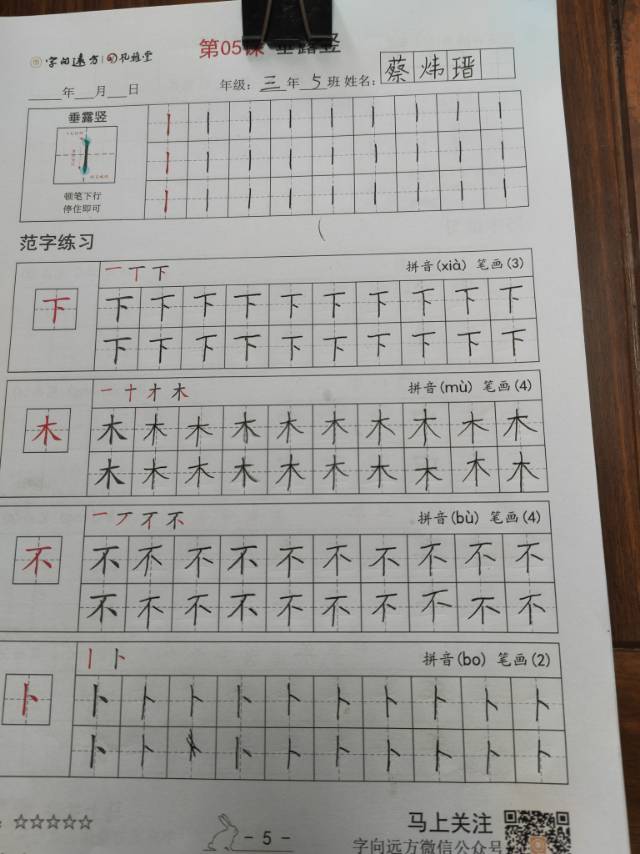 字向远方 孔雅堂 第05课 垂露竖
年 月 日 年级: 三 年 5 班 姓名: 蔡炜瑨
垂露竖
顿笔下行
停住即可
范字练习
一丁下 拼音(xià) 笔画(3)
下 下下下下下下下下下下
下下下下下下下下下下
一十才木 拼音(mù) 笔画(4)
木 木木木木木木木木木木
木木木木木木木木木木
一丆不不 拼音(bù) 笔画(4)
不 不不不不不不不不不不
不不不不不不不不不不
丨卜 拼音(bo) 笔画(2)
卜 卜卜卜卜卜卜卜卜卜卜
卜卜卜卜卜卜卜卜卜
☆☆☆☆☆ - 5 - 马上关注
字向远方微信公众号